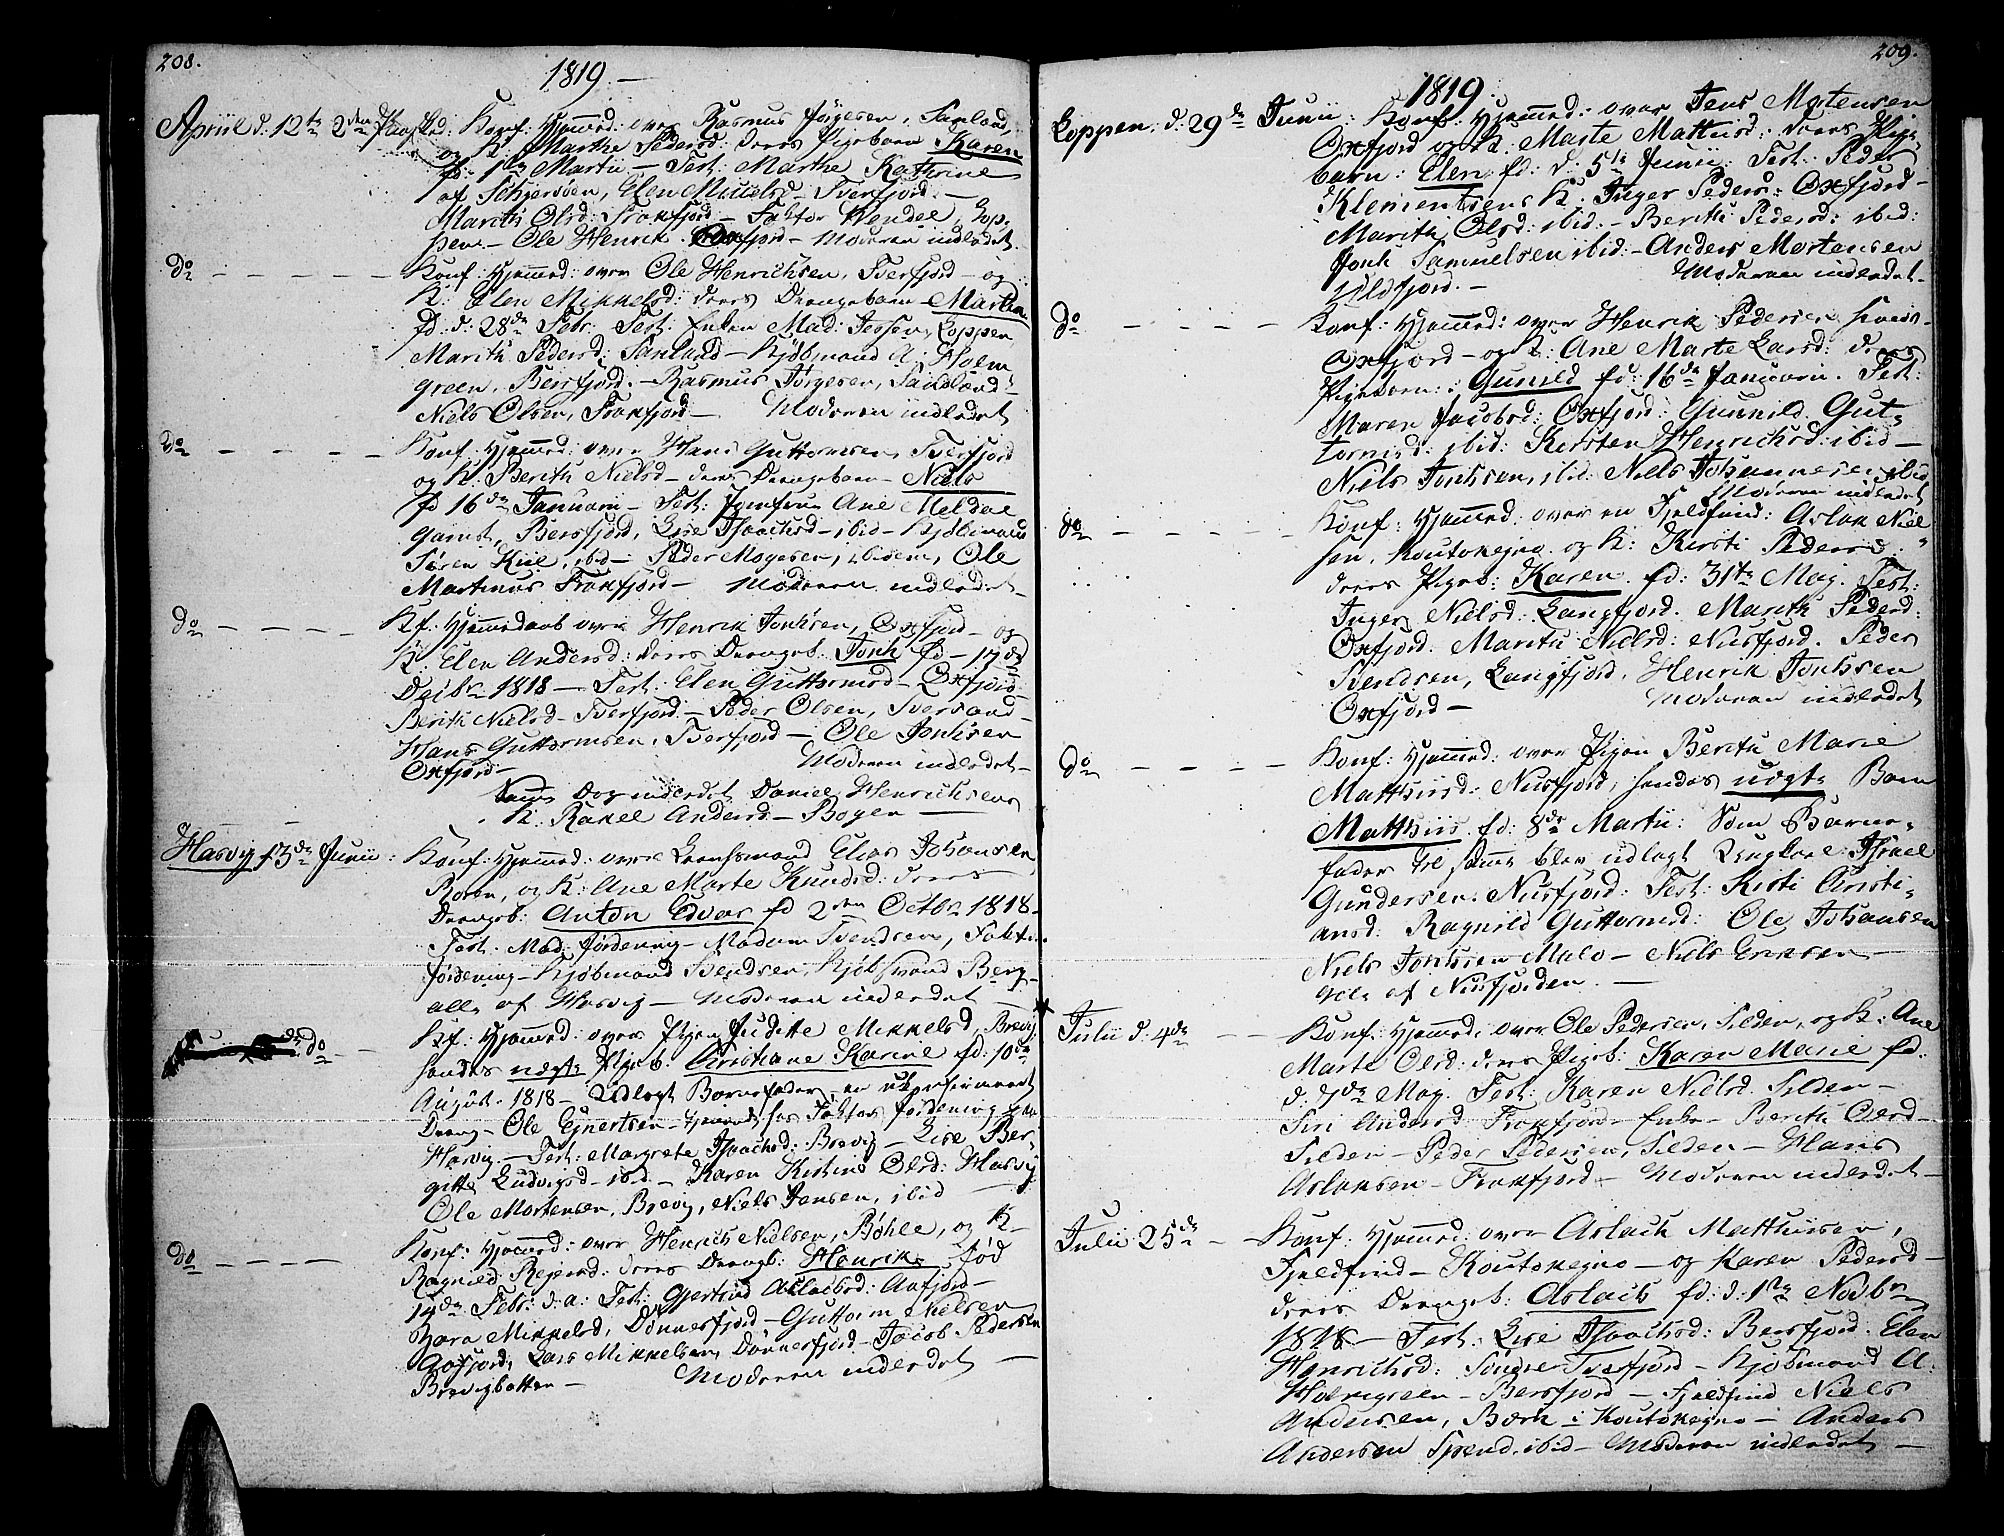 208.
1819. —
Apriil d. 12te 2den Paaskd: Konf: Hjemmed: over Rasmus Jørgesen, Sanland,
og K. Marthe Peders: deres Pigebarn Karen
fd: 1te Martii — Test: Marthe Kathrine
af Stjernøen, Elen Nielsd — Tverfjord. —
Marith Olsd: Frakfjord — Faktor Wendel, Lop-
pen — Ole Henrik. Oxfjord — Moderen indledet
do — Konf: Hjemmed: over Ole Henrichsen, Tverfjord — og
K: Elen Mikkelsd: deres Drengebarn — Marten
fd: d: 28de Febr. Test: Enken Mad: Jessen, Loppen
Marith Pedersd: Sanland — Kjøbmand A: Holm-
green, Bersfjord. — Rasmus Jørgesen, Sandland —
Niels Olsen, Frakfjord — Moderen indledet
do — Konf: Hjemmed: over Hans Guttormsen, Tverfjord
og K. Berith Nielsd — deres Drengebarn — Niels
fd 16de Januarii — Test: Jomfrue Ane Meldal
Garnst, Bersfjord, Lise Isaachsd — ibid — Kjøbmand
Søren Kiil, ibid — Peder Mogesen, ibidem, Ole
Martinus Frakfjord — Moderen indledet —
do — Kf: Hjemmedaab over Henrik Jonsen, Oxfjord — og
K. Elen Andersd: deres Drengeb. Jonh fd — 17de
Dcibr 1818 — Test: Elen Guttormsd — Oxfjord
Berith Nielsd — Tverfjord — Peder Olsen, Tversand —
Hans Guttormsen, Tverfjord — Ole Jonsen
Oxfjord — Moderen indledet —
Samme Dag indledet Daniel Henrichsens
K. Rakel Andersd — Bogen —
Hasvig 13de Junii: Konf: Hjemmed: over Leensmand Elias Johansen,
og K: Ane Marte Knudsd: deres
Drengeb: Anton Edvar fd 2den Octbr 1818 —
Test. Mad: Førdening — Madam Svendsen, Faktor
Førdening — Kjøbmand Svendsen, Kjøbmand Berg —
alle af Hasvig — Moderen indledet —
do — Kf: Hjemmed: over Pigen Juditte Mikkelsd, Brevig
hendes uægte Pigeb. Christiane Karine fd: 10de
August. 1818 — Udlagt Barnefader — en ukonfirmeret
Dreng — Ole Ejnertsen — tjenende hos Faktor Førdening
Hasvig — Test: Margrete Isaachsd: Brevig — Lise Ber-
gitte Ludvigsd — ibid — Karen Kirstine Olsd: Hasvig
Ole Mortensen, Brevig, Niels Jensen, ibid —
do — Konf: Hjemmed: over Henrich Nielsen, Bøhle, og K —
Ragnild Rejersd: deres Drengeb: Henrik. Fød
14de Febr: d. a: Test: Gjertrud Aslachsd: Aafjord —
Bara Mikkelsd, Dønnesfjord — Guttorm Nielsen
Aafjord, Lars Mikkelsen, Dønnesfjord — Jacob Pedersen
Brevigbotten — Moderen indledet —
209.
1819
Loppen, d. 29de Junii: Konf: Hjemmed: over Jens Mortensen
Oxfjord og K. Marte Mathisd: deres Pige-
barn: Elen, fd: d. 5te Junii: Test. Peder
Klementsens K. Inger Pedersd: Oxfjord —
Marith Olsd: ibid. — Berith Pedersd: ibid:
Jonh Samuelsen ibid. — Anders Mortensen
Ulsfjord. — Moderen indledet —
do — Konf: Hjemmed: over Henrik Pedersen
Oxfjord — og K: Ane Marte Larsd: deres
Pigebarn: Gunild fd: 16de Januarii. Test:
Maren Jacobsd: Oxfjord: Gunnild Gut-
tormsd: ibid: Kirsten Henrichsd: ibid —
Niels Jonsen, ibid: Niels Johannesen ibid
Moderen indledet
do — Konf: Hjemmed: over en Fjeldfind: Aslak Niel-
sen, Koutokegno og K: Kirsti Pedersd:
deres Pigeb: Karen. fd: 31te Maj. Test:
Inger Nielsd: Langfjord. Marith Pedersd:
Oxfjord. Marith Nielsd: Nusfjord. Peder
Bendsen, Langfjord, Henrik Jonsen
Oxfjord — Moderen indledet
do — Konf: Hjemmed: over Pigen Berith Marie
Matthiisd: Nusfjord, hendes uægte Barn
Matthiis fd: 8de Martii: Som Barne-
fader til samme blev udlagt Ungkarl: Israel
Gundersen: Nusfjord: Test: Kirsti Christi-
ansd: Ragnild Guttormsd: Ole Johansen
Niels Jonsen Malo — Niels Eriksen —
Alle af Nusfjorden. —
Julii d. 4de — Konf: Hjemmed: over Ole Pedersen, Silden, og K: Ane
Marte Olsd: deres Pigeb: Karen Marie fd.
d. 7de Maj. Test: Karen Nielsd. Silden —
Siri Andersd Frakfjord — Enke — Berith Olsd —
Silden — Peder Pedersen, Silden — Hans
Aslaksen — Frakfjord — Moderen indledet —
Julii 25de — Konf: Hjemmed: over Aslach Matthisen,
Fjeldfind — Koutokegno — og Karen Pedersd —
deres Drengeb: Aslach fd: d: 1te Novbr
1818 — Test: Lise Isaachsd: Bersfjord. Elen
Henrichsd: Søndre Tverfjord — Kjøbmand A.
Holmgreen — Bersfjord — Fjeldfind Niels
Andersen, Børn i Koutokegno — Anders
Andersen Spend. ibid — Moderen indledet —